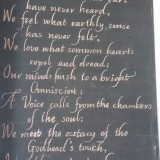 have never heard,
We feel what earthly sense
has never felt.
We love what common hearts
repel and dread;
Our minds hush to a bright
Omniscient;
A Voice calls from the chambers
of the soul;
We meet the ecstasy of the
Godhead's touch,